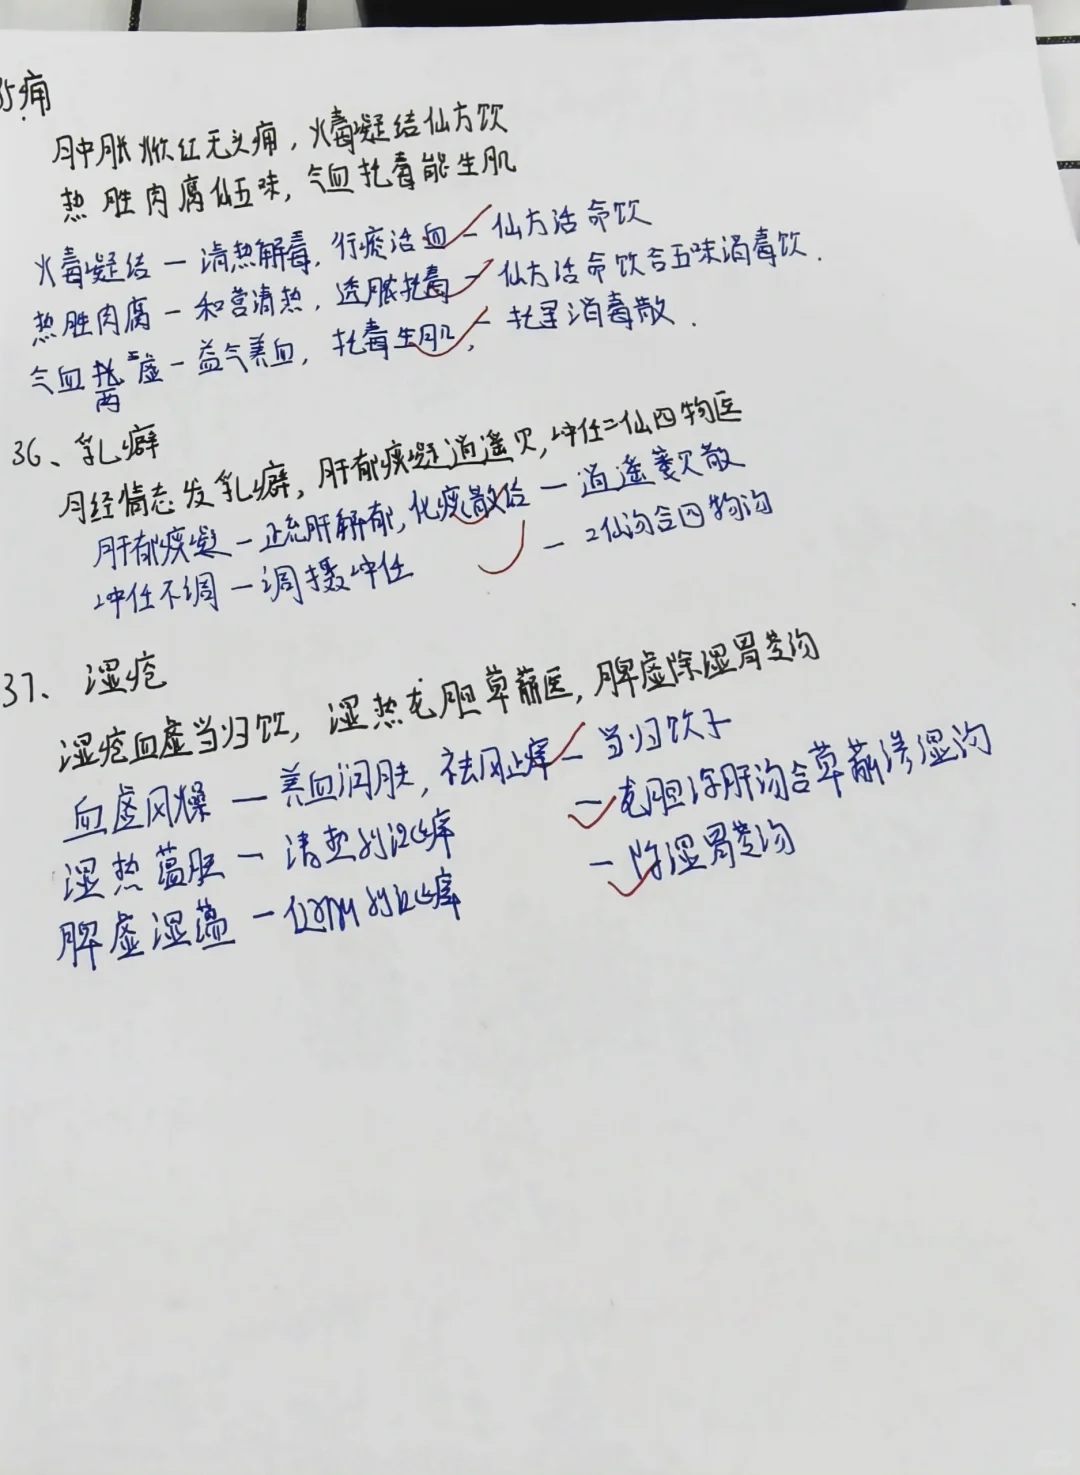 35.痈
肿胀焮红无头痈，火毒凝结仙方饮
热胜肉腐仙五味，气血托毒能生肌
火毒凝结－清热解毒，行瘀活血－仙方活命饮
热胜肉腐－和营清热，透脓托毒－仙方活命饮合五味消毒饮.
气血两虚－益气养血，托毒生肌，－托里消毒散.
36、乳癖
月经情志发乳癖，肝郁痰凝逍遥贝，冲任二仙四物医
肝郁痰凝－疏肝解郁，化痰散结－逍遥蒌贝散
冲任不调－调摄冲任－2仙汤合四物汤
37、湿疮
湿疮血虚当归饮，湿热龙胆草萠医，脾虚除湿胃苓汤
血虚风燥－养血润肤，祛风止痒－当归饮子
湿热蕴肤－清热利湿止痒－龙胆泻肝汤合萆薢渗湿汤
脾虚湿蕴－健脾利湿止痒－除湿胃苓汤